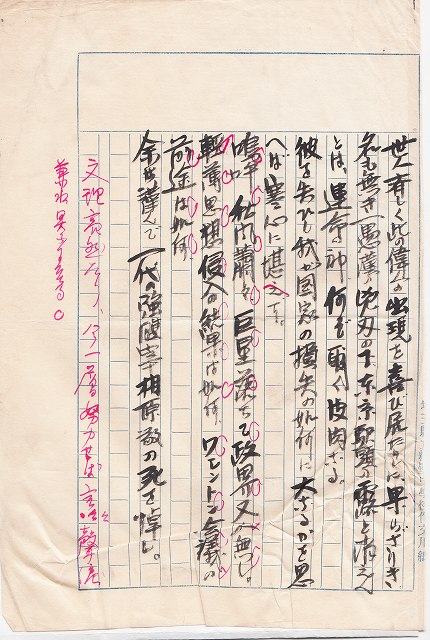 世人斉しく此の偉人の出現を喜び居たるに果らざりき
名も無き一愚漢の兇刃の下東京駅頭の露と消えん
とは、運命の神何ぞ斯く皮肉なる。
彼を失ひし我が国家の損失の如何に大なるかを思
へば寒心に堪えず。
嗚呼秋風蕭々巨星落ちて政界又人無し。
軽薄思想侵入の結果は如何、ワシントン会議の
前途は如何
余は謹んで一代の強健宰相原敬の死を悼む。
文理亮然たり、今一層努力せば